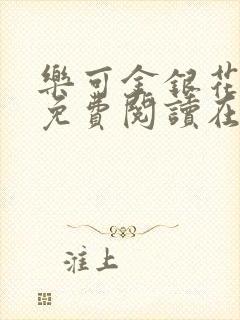 樂可金銀花
免費閱讀在
淮上